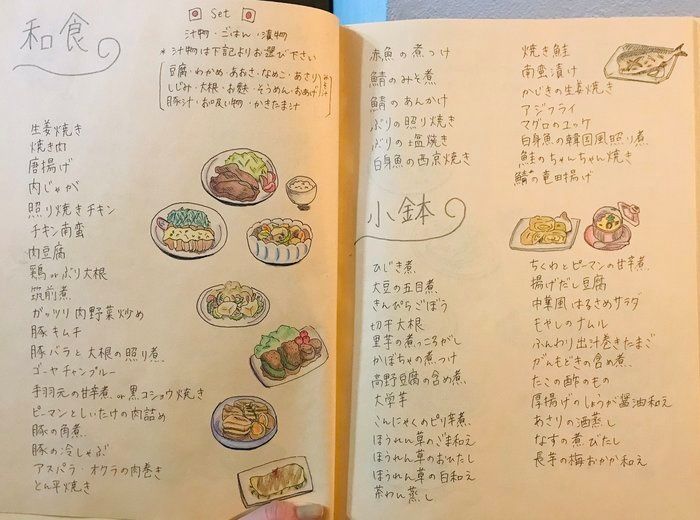 和食
Set
汁物・ごはん・漬物
* 汁物は下記よりお選び下さい
豆腐・わかめ・あおさ・なめこ・あさり
しじみ・大根・お麩・そうめん・おあげ
豚汁・お吸い物・かきたま汁
生姜焼き
焼き肉
唐揚げ
肉じゃが
照り焼きチキン
チキン南蛮
肉豆腐
鶏orぶり大根
筑前煮
ガッツリ肉野菜炒め
豚キムチ
豚バラと大根の照り煮
ゴーヤチャンプルー
手羽元の甘辛煮or黒コショウ焼き
ピーマンとしいたけの肉詰め
豚の角煮
豚の冷しゃぶ
アスパラ・オクラの肉巻き
とん平焼き
赤魚の煮つけ
鯖のみそ煮
鯖のあんかけ
ぶりの照り焼き
ぶりの塩焼き
白身魚の西京焼き
焼き鮭
南蛮漬け
かじきの生姜焼き
アジフライ
マグロのユッケ
白身魚の韓国風照り煮
鮭のちゃんちゃん焼き
鯖の竜田揚げ
小鉢
ひじき煮
大豆の五目煮
きんぴらごぼう
切干大根
里芋の煮っころがし
かぼちゃの煮つけ
高野豆腐の含め煮
大学芋
こんにゃくのピリ辛煮
ほうれん草のごま和え
ほうれん草のおひたし
ほうれん草の白和え
茶わん蒸し
ちくわとピーマンの甘辛煮
揚げだし豆腐
中華風はるさめサラダ
もやしのナムル
ふんわり出汁巻きたまご
がんもどきの含め煮
たこの酢のもの
厚揚げのしょうが醤油和え
あさりの酒蒸し
なすの煮びたし
長芋の梅おかか和え